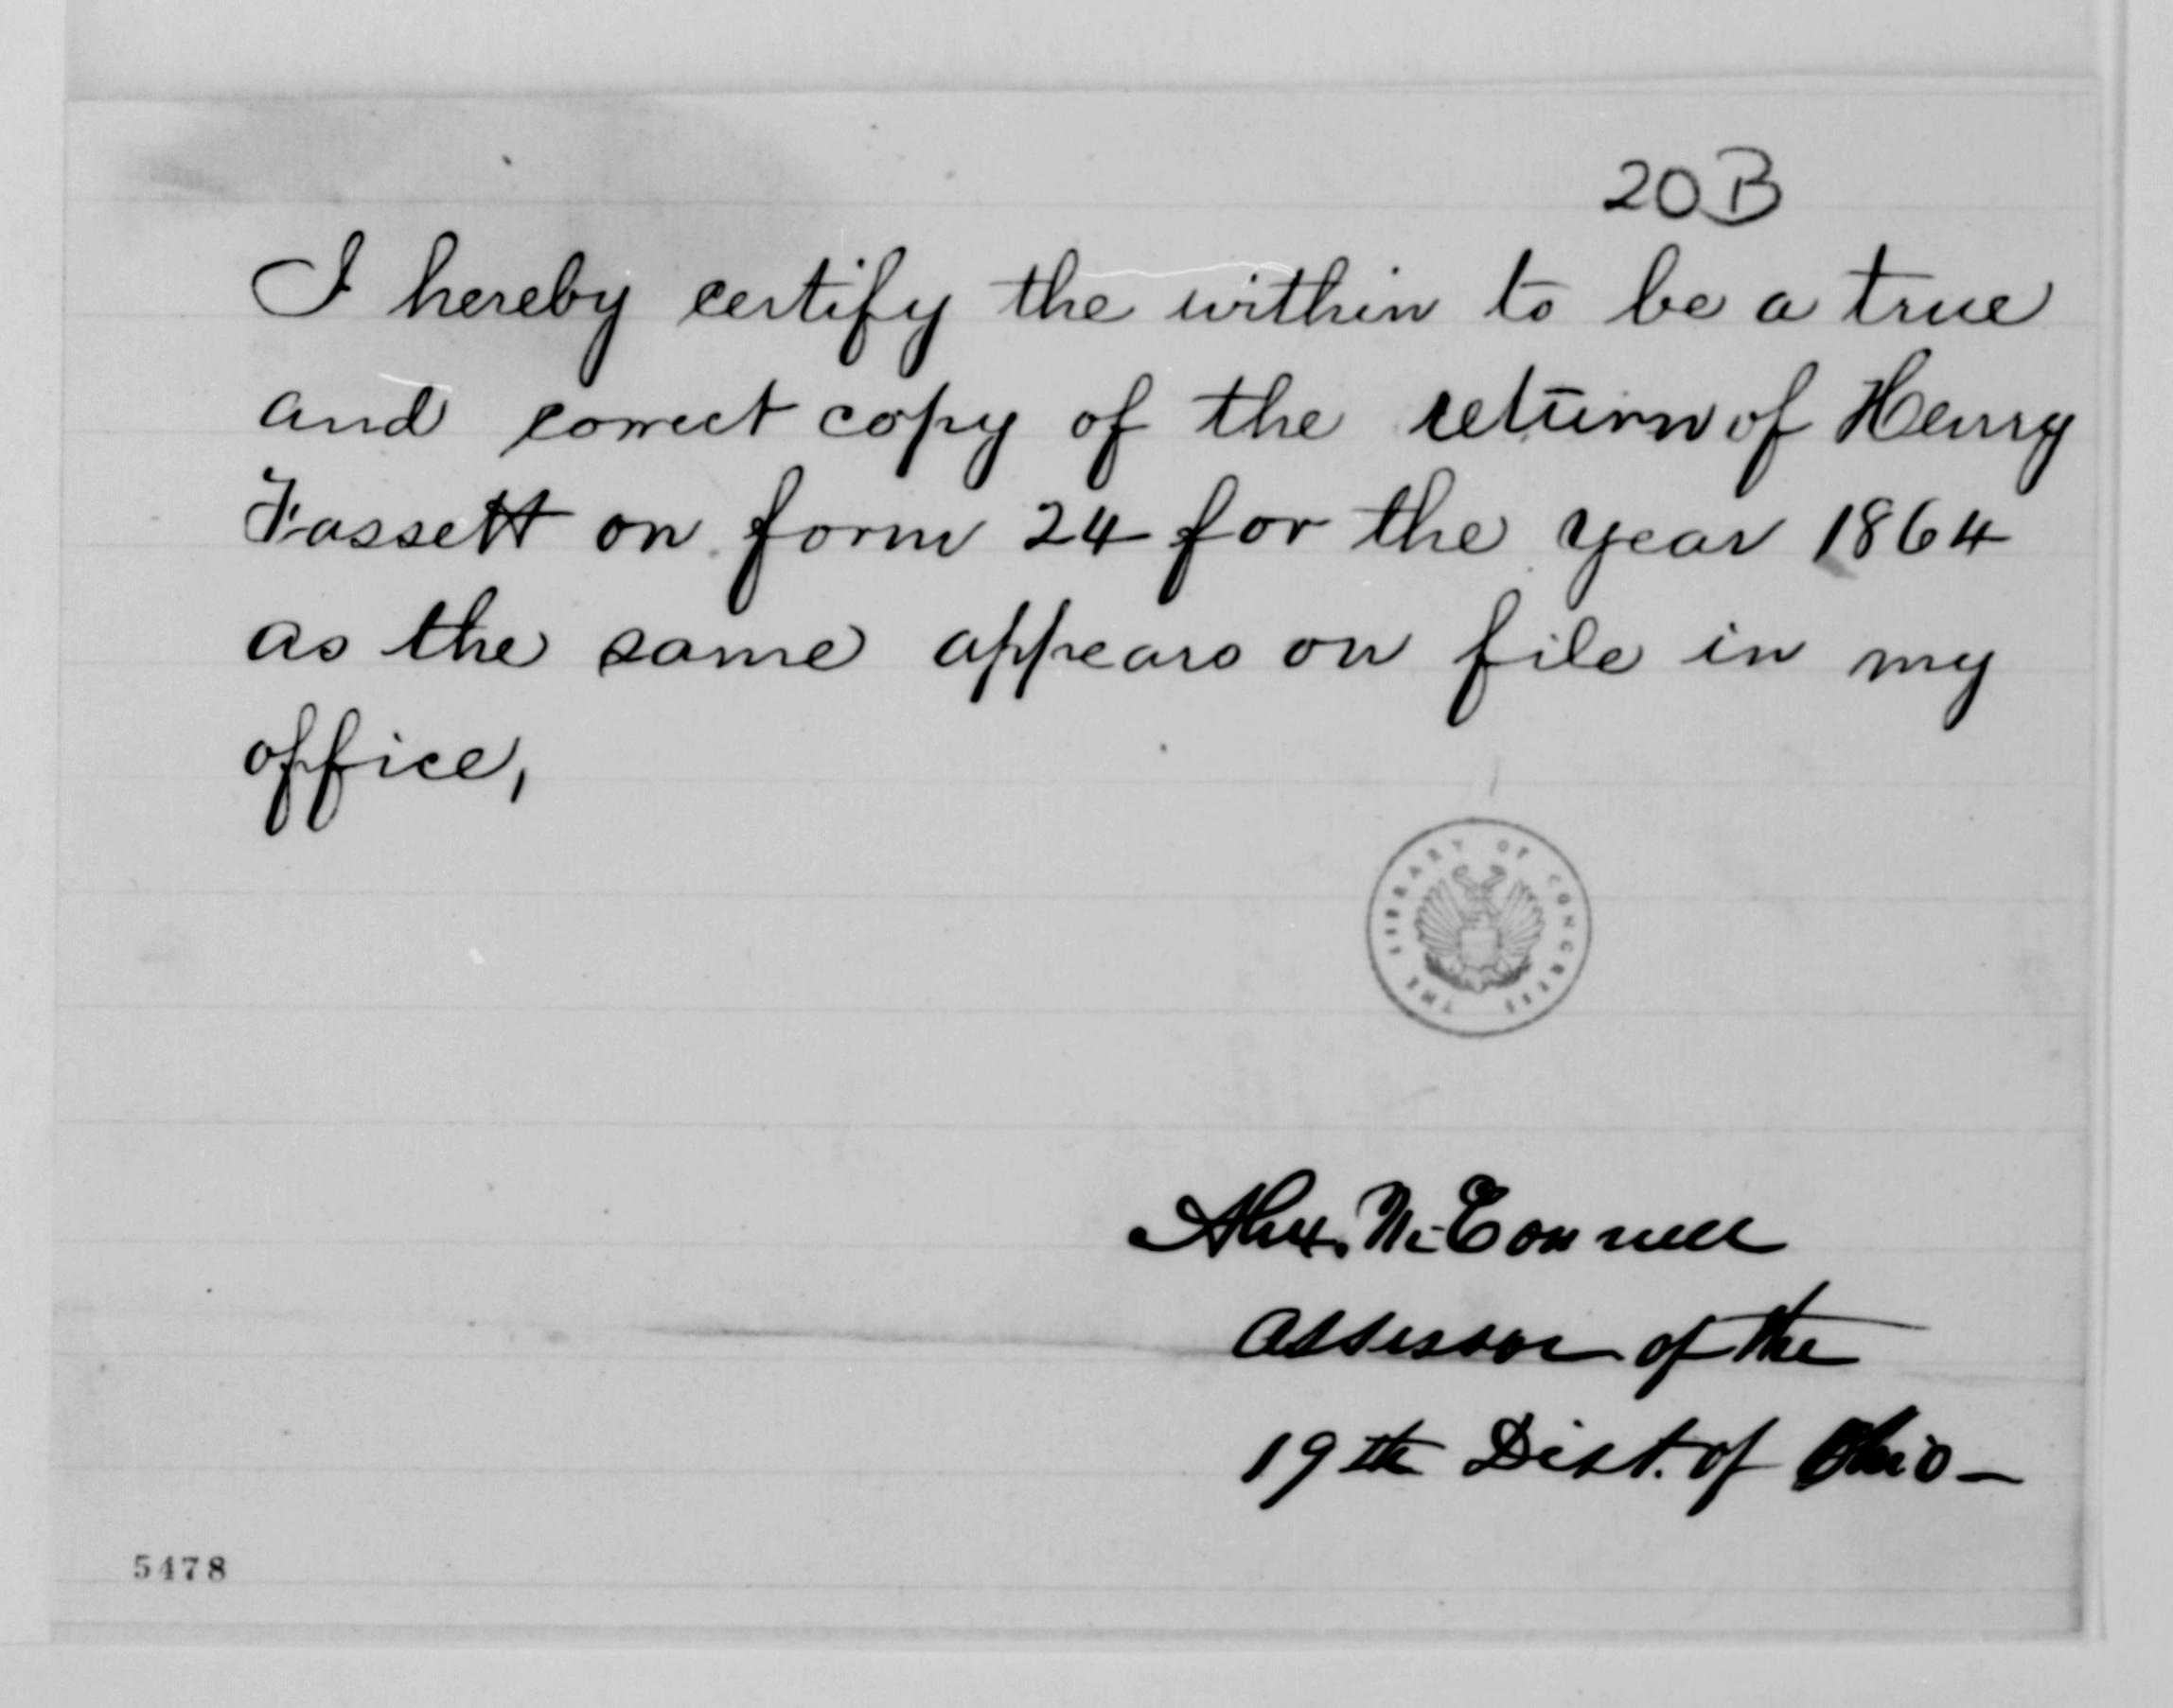 20B
I hereby certify the within to be a true
and correct copy of the return of Henry
Fassett on form 24 for the year 1864
as the same appears on file in my
office,
THE LIBRARY OF CONGRESS
Alex. McConnell
Assessor of the
19th Dist. of Ohio—
5478